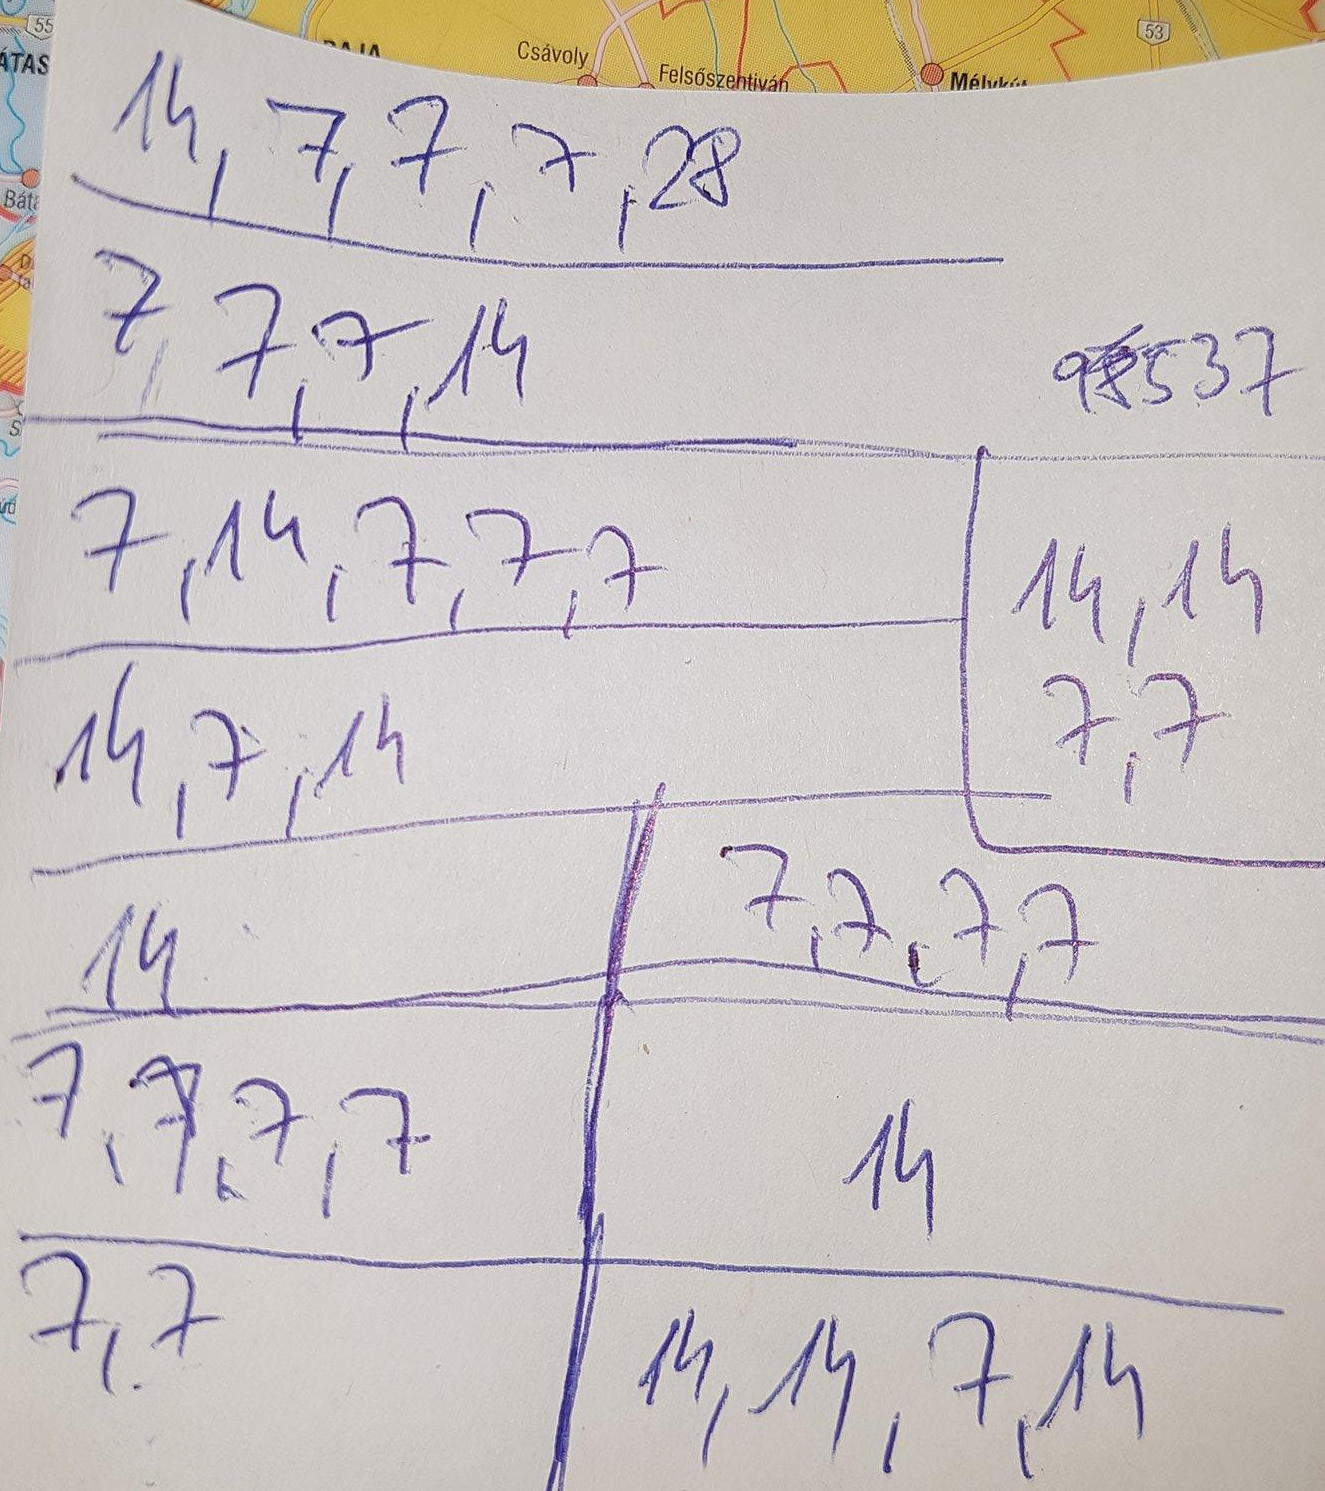 55
53
ÁTAS
Csávoly
Felsőszentiván
14, 7, 7, 7, 28
7, 7, 7, 14
537
7, 14, 7, 7, 7
14, 14
7, 7
14, 7, 14
7, 7, 7, 7
14
7, 7, 7, 7
14
7, 7
14, 14, 7, 14